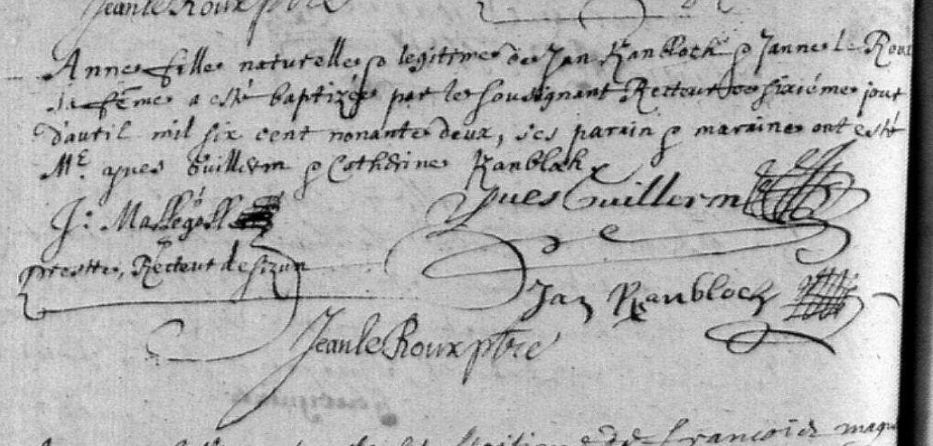 Jean le Roux pbre
Anne fille naturelle & legitime de Jan Kanbloch & Janne le Roux
sa feme a esté baptizée par le sousignant Recteur ce sixiéme jour
d'avril mil six cent nonante deux, ses parain & maraine ont esté
Mᵉ. yves Guillerm & Catherine Kanbloch
Yves Guillerm
J: Mallégoll
prestre, Recteur de sizun
Jan Kanbloch
Jean le Roux pbre
legitime de François